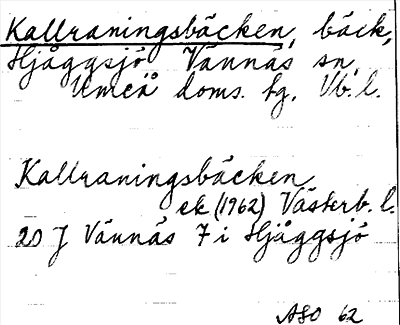 Kallraningsbäcken, bäck,
Hjåggsjö Vännäs sn,
Umeå doms. tg, Vb. l.
Kallraningsbäcken
ek (1962) Västerb. l.
20 J Vännäs 7 i Hjåggsjö
ASO 62